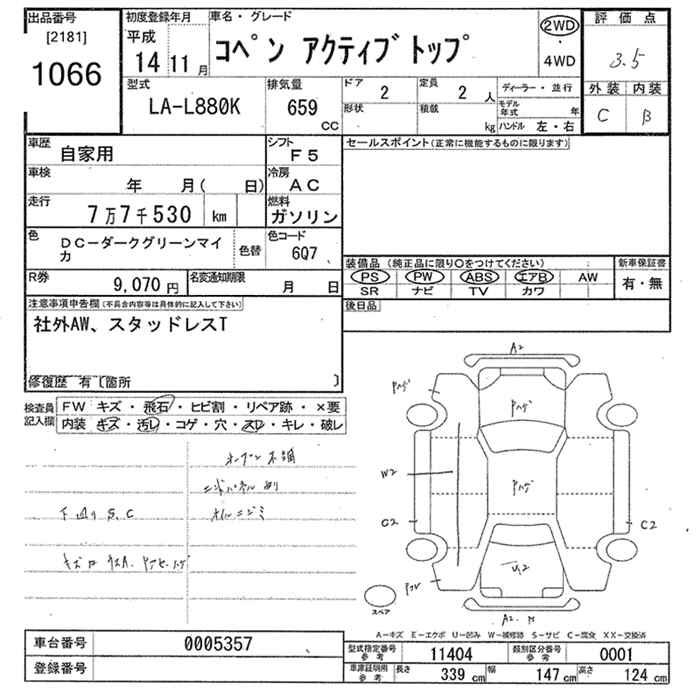 出品番号
[2181]
1066
初度登録年月
平成
14 11 月
車名・グレード
コペン アクティブトップ
2WD
・
4WD
評価点
3.5
外装 内装
C B
型式
LA-L880K
排気量
659
cc
ドア
2
定員
2 人
形状
積載
kg
ディーラー・並行
モデル年式 年
ハンドル 左・右
車歴
自家用
シフト
F5
車検
年 月( 日)
冷房
AC
走行
7万7千530 km
燃料
ガソリン
色
DC-ダークグリーンマイカ
色替
色コード
6Q7
R券
9,070 円
名変通知期限
月 日
セールスポイント(正常に機能するものに限ります)
装備品(純正品に限り○をつけてください)
PS PW ABS エアB AW
SR ナビ TV カワ
新車保証書
有・無
後日品
注意事項申告欄(不具合内容等は具体的に記入して下さい)
社外AW、スタッドレスT
修復歴 有〔箇所 〕
検査員記入欄
FW キズ・飛石・ヒビ割・リペア跡・×要
内装・キズ・汚レ・コゲ・穴・スレ・キレ・破レ
下廻りS.C
A2
Pハゲ
Pハゲ
Pハゲ
W2
C2
C2
U2
A2
スペア
A-キズ E-エクボ U-凹み W-補修跡 S-サビ C-腐食 XX-交換済
車台番号
0005357
登録番号
型式指定番号参考
11404
類別区分番号参考
0001
車庫証明用参考
長さ 339 cm
幅 147 cm
高さ 124 cm